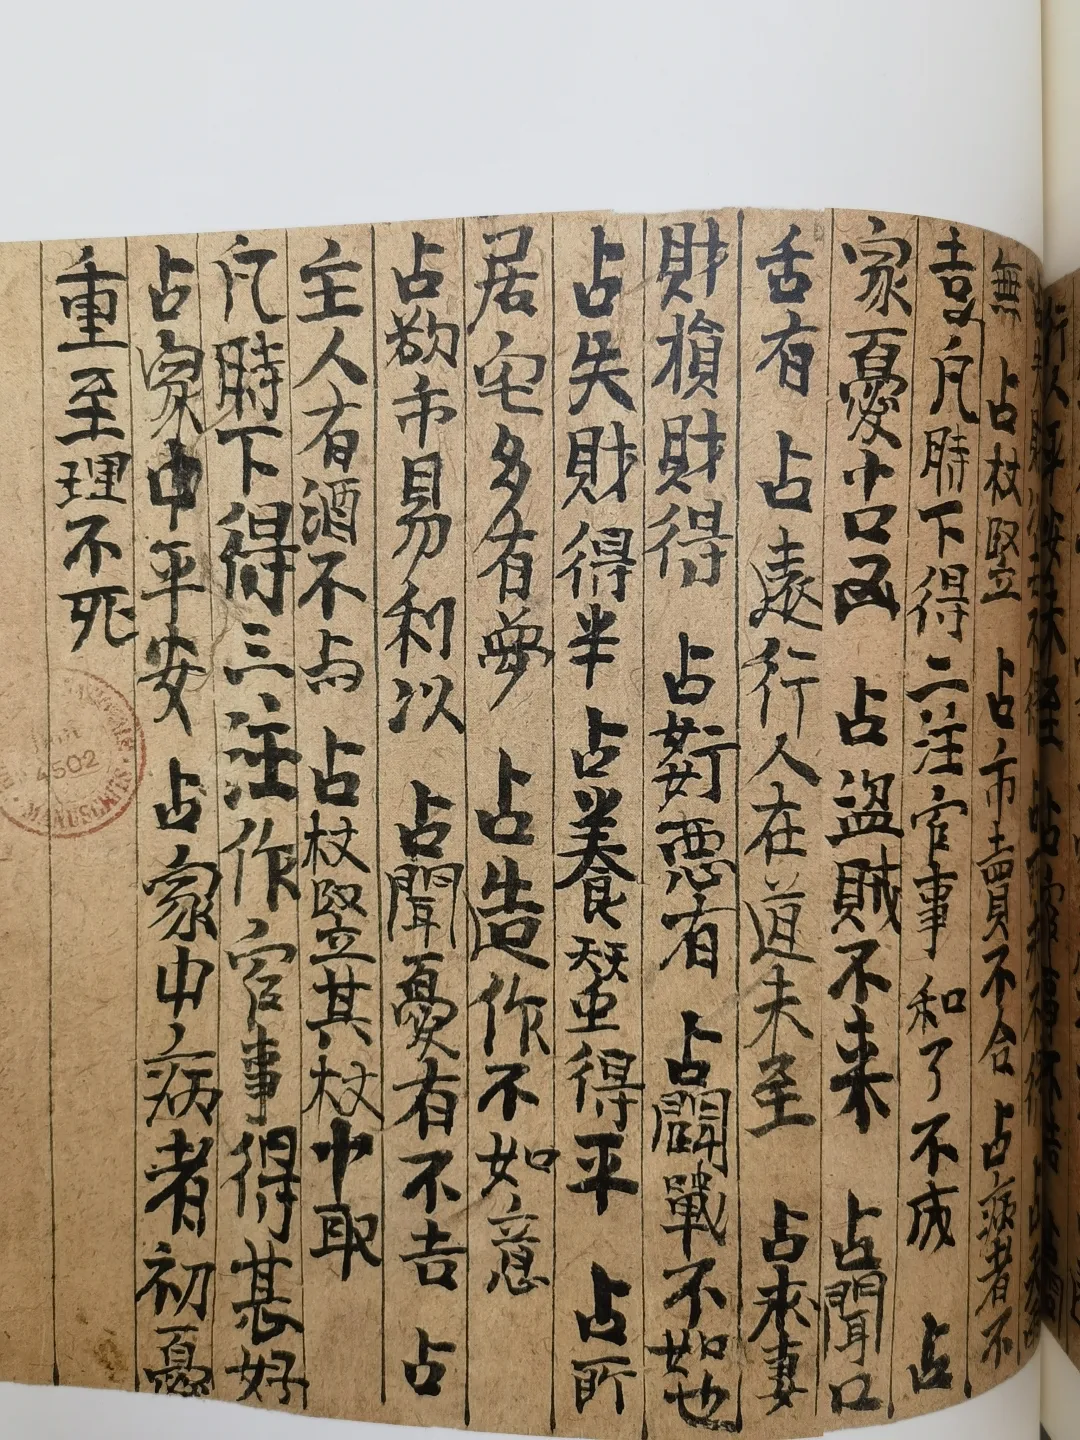 無 占杖竪 占市賣不合 占病者不
喜 凡時下得二注官事和了不成 占
家百憂小口凶 占盜賊不来 占聞口
舌有 占遠行人在道未至 占求妻
財損財得 占婦惡有 占鬪戰不如也
占失財得半占養蚕得平 占所
居宅多有夢 占造作不如意
占欲市易利以 占聞憂有不吉 占
主人有酒不占 占杖竪其杖中取
凡時下得三注作官事得甚好
占家中平安 占家中病者初憂
重至理不死
4502
MANUSCRITS